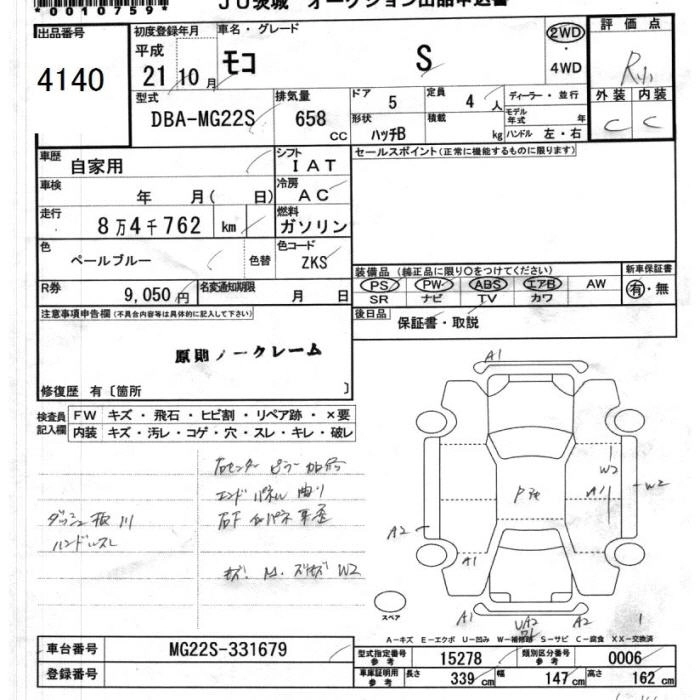 *0010759*
JU茨城 オークション出品申込書
出品番号
4140
初度登録年月
平成
21 10月
車名・グレード
モコ S
2WD
4WD
評価点
外装 内装
C C
型式
DBA-MG22S
排気量
658
cc
ドア 5
定員 4 人
ディーラー・並行
モデル年式 年
形状 ハッチB
積載 kg
ハンドル 左・右
車歴 自家用
シフト IAT
車検 年 月( 日)
冷房 AC
走行 8万4千762 km
燃料 ガソリン
色 ペールブルー
色替
色コード ZKS
R券 9,050円
名変通知期限 月 日
セールスポイント(正常に機能するものに限ります)
装備品 (純正品に限り○をつけてください)
PS PW ABS エアB AW
SR ナビ TV カワ
新車保証書
有・無
後日品 保証書・取説
注意事項申告欄(不具合内容等は具体的に記入して下さい)
原則ノークレーム
修復歴 有〔箇所 〕
検査員記入欄
FW キズ・飛石・ヒビ割・リペア跡・×要
内装 キズ・汚レ・コゲ・穴・スレ・キレ・破レ
エンドパネル 曲り
ハンドルスレ
A1
W2
A1
W2
A2
A1
A1
UA2
A2
スペア
A-キズ E-エクボ U-凹み W-補修跡 S-サビ C-腐食 XX-交換済
車台番号 MG22S-331679
登録番号
型式指定番号 参考 15278
類別区分番号 参考 0006
車庫証明用 参考 長さ 339 cm 幅 147 cm 高さ 162 cm